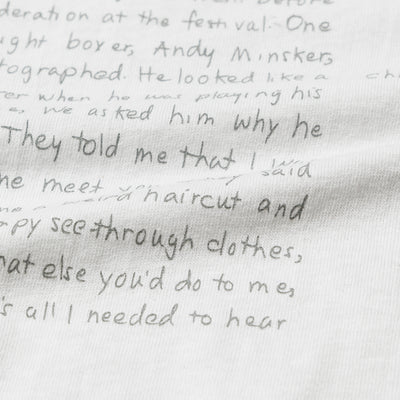 deration at the festival. One
ught boxer, Andy Minsker,
tographed. He looked like a
er when he was playing his
e, we asked him why he
They told me that I said
me meet a haircut and
py see through clothes,
hat else you'd do to me,
's all I needed to hear